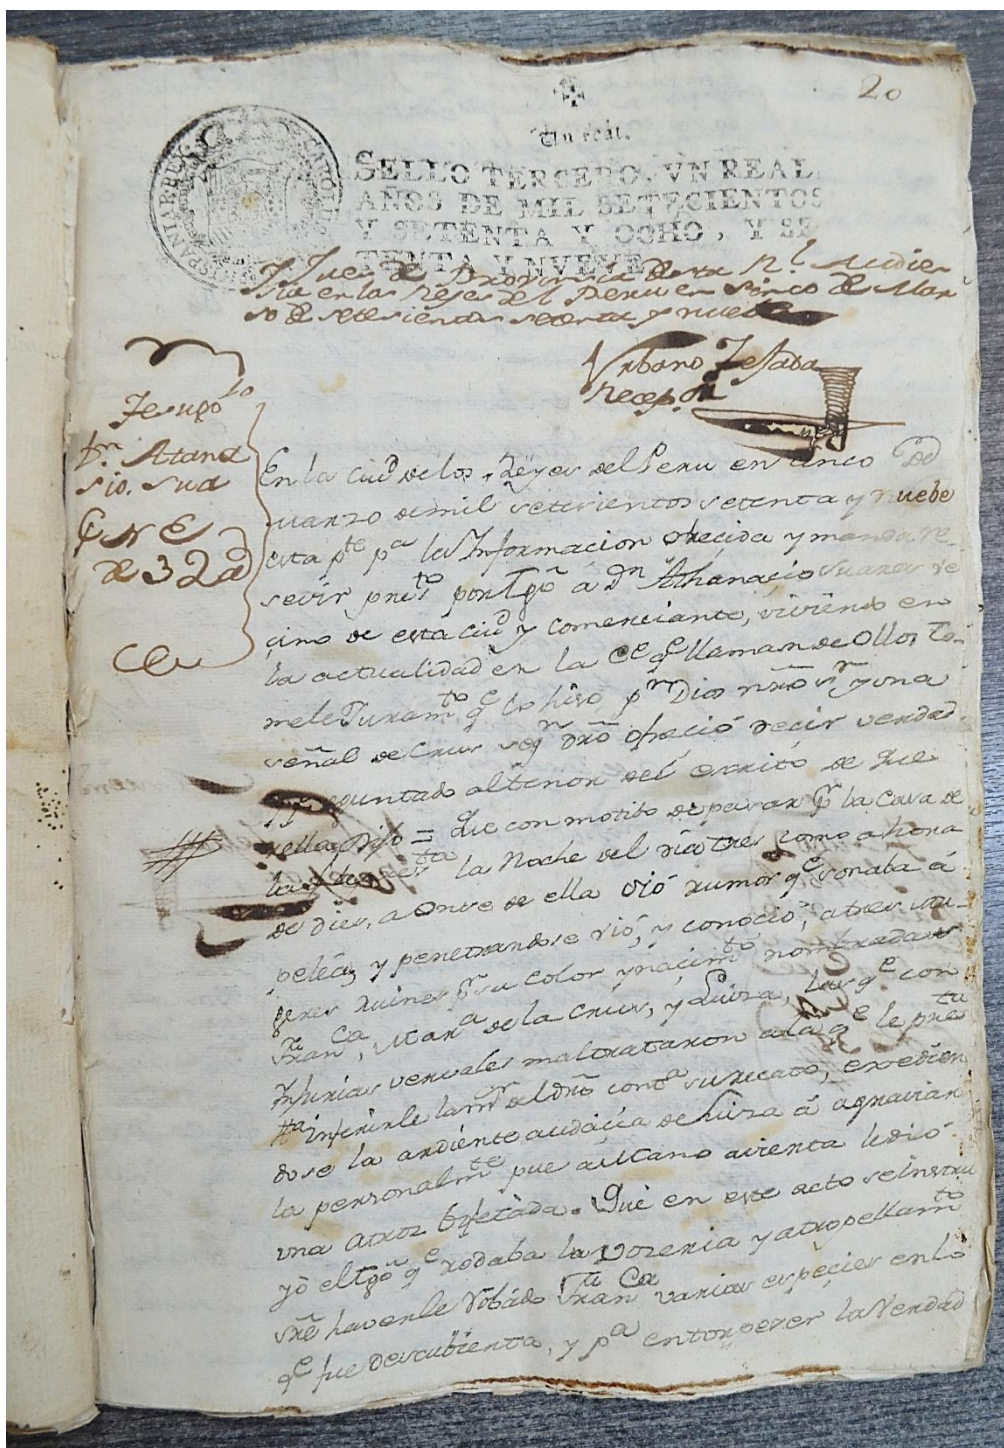 20
Un real.
SELLO TERCERO, VN REAL,
AÑOS DE MIL SETECIENTOS
Y SETENTA Y OCHO, Y SE-
TENTA Y NVEVE.
HISPANIAR REX
Jues de Provincia de esta Rl. Audien
sia en los Reyes del Peru en sinco de Mar
so de setesientos setenta y nuebe
Urbano Tesada
Recepor
Testigo 1o
Dn. Atana
sio. Sua
de 32 a
En la ciud de los Reyes del Peru en cinco De
marzo de mil setecientos setenta y nuebe
esta pte pa la Informacion ofrecida y manda re-
sevir pnto por Tgo à Dn Athanacio Suares ve
cino de esta ciud y comerciante, viviendo en
la actualidad en la Ce qe llaman de Ollos To-
mele Juramto qe lo hiso pr Dios nro sr y una
señal de Crus segn dro ofreció decir verdad
preguntado al tenor del escrito de que
rella Dijo = Que con motibo de pasar pr la Casa de
la la Noche del dia tres como a hora
de dies, a Onse de ella oió rumor qe sonaba á
pelea, y penetrandose vió, y conoció, a tres mu-
geres ruines pr su color y nacimto nombradas
Franca, Mara de la Crus, y Luisa, las qe con
Injurias vervales maltrataron a la qe le
inferirle del dro conta su recato, exedien
dose la ardiente audácia de Luisa á agraviar
la personalmte pue a Mano avierta le dió
una atros bofetáda. Que en este acto se instru
yó el tgo qe rodaba la voseria y atropellamto
sre haverle robádo Franca varias espécies en lo
qe fue descubierta, y pa entorpeser la Verdad